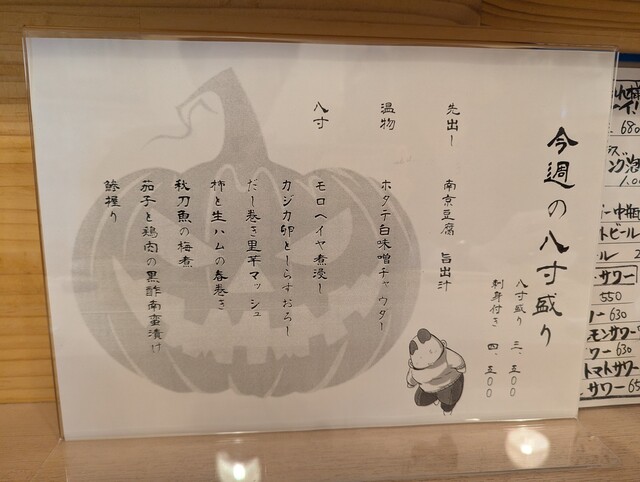 今週の八寸盛り
八寸盛り 三、五〇〇
刺身付き 四、五〇〇
先出し 南京豆腐 旨出汁
温物 ホタテ白味噌チャウター
八寸 モロヘイヤ煮浸し
カジカ卵としらすおろし
だし巻き里芋マッシュ
柿と生ハムの春巻き
秋刀魚の梅煮
茄子と鶏肉の黒酢南蛮漬け
鯵握り
680
550
630
トビール
サワー
モンサワー
ワー 630
トマトサワー
サワー 65